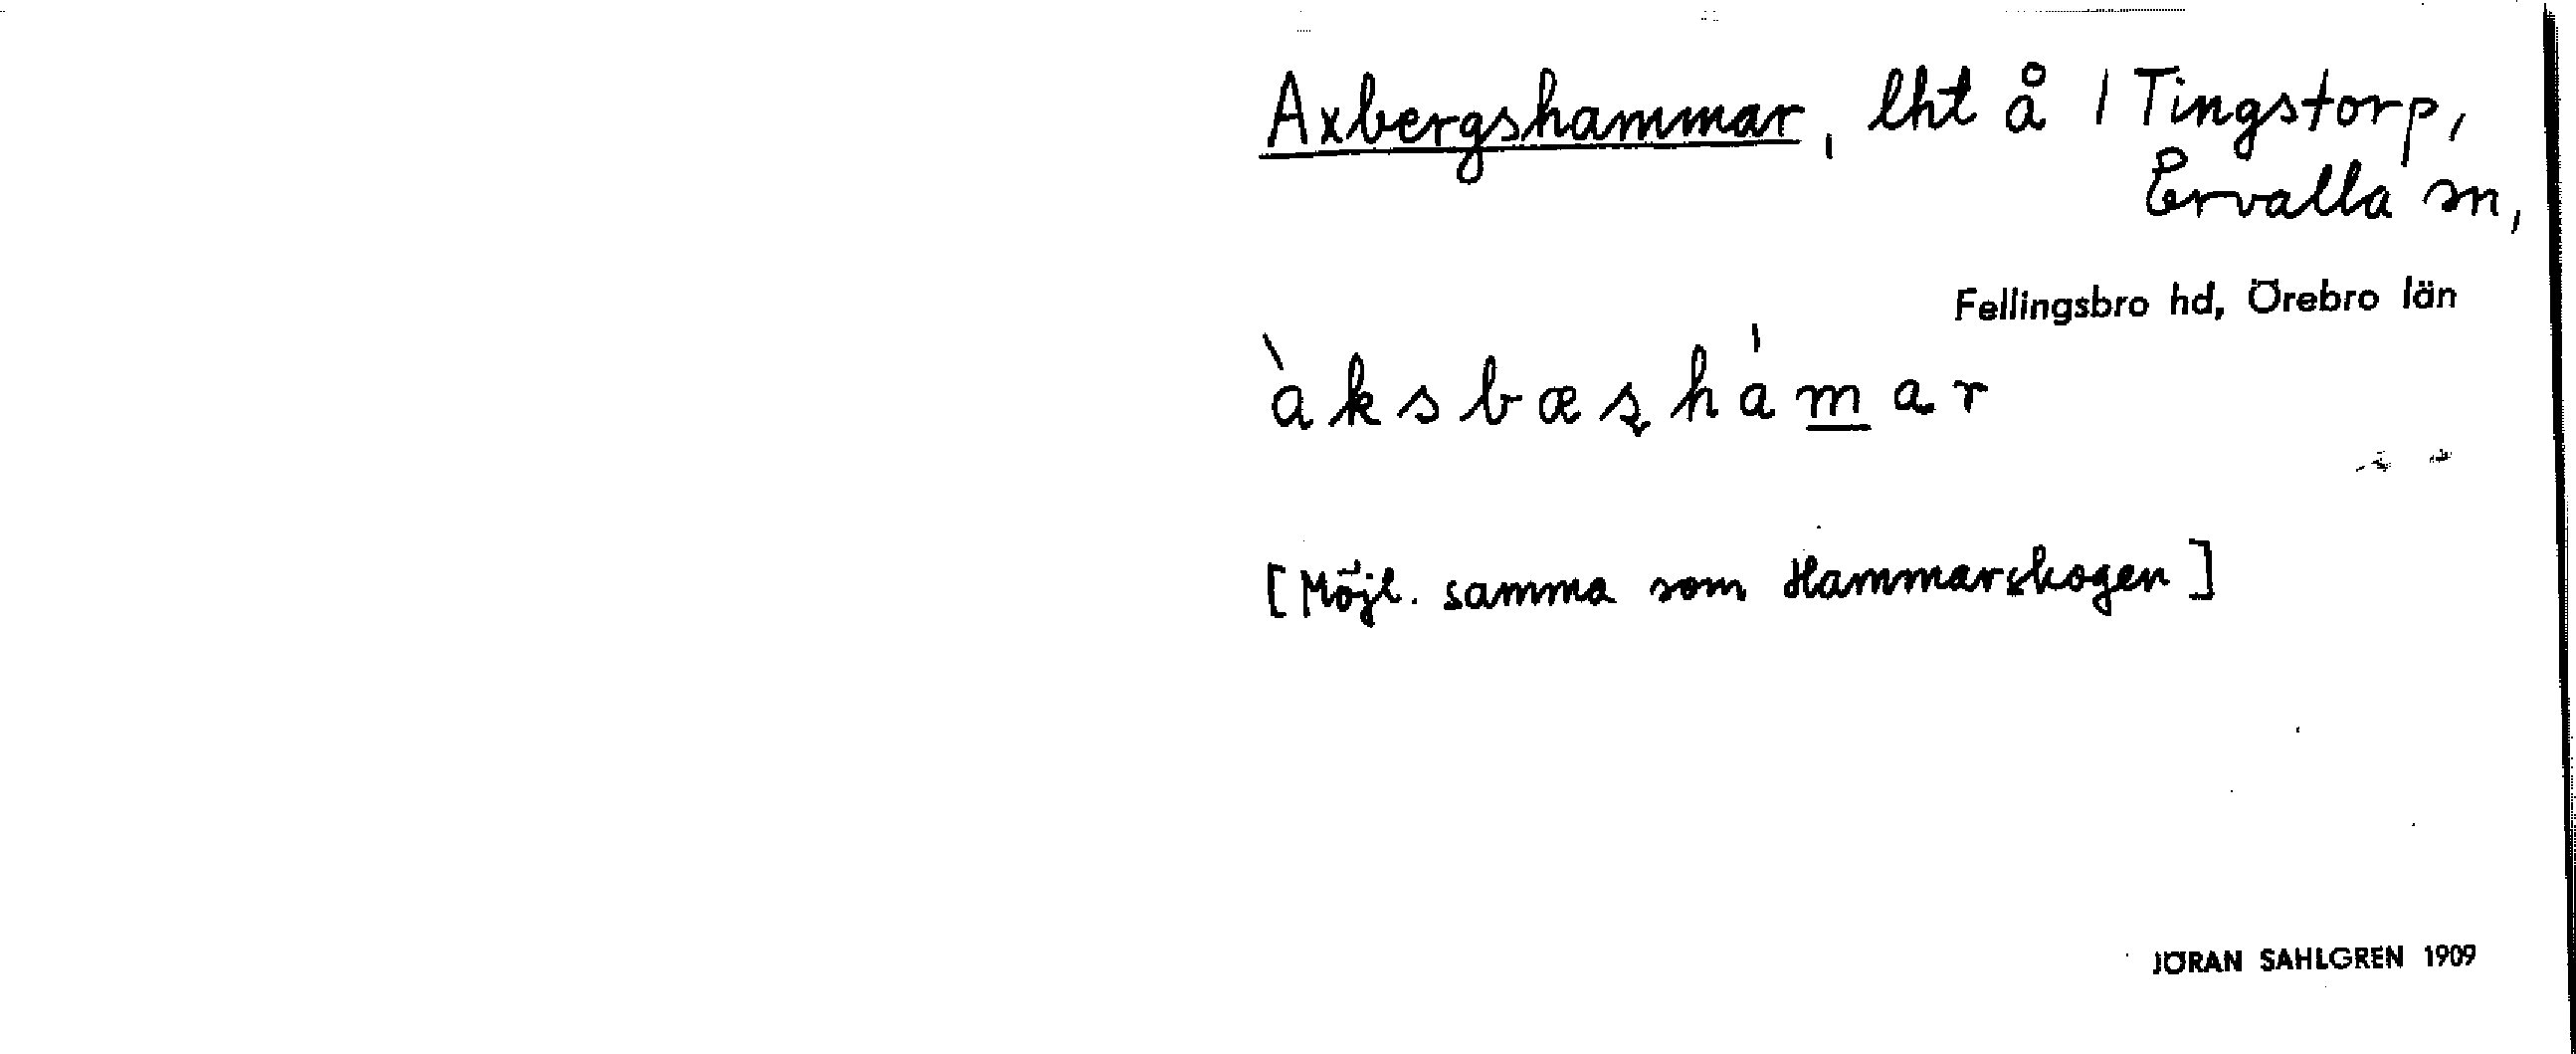 Axbergshammar, lht å / Tingstorp,
Ervalla sn,
Fellingsbro hd, Örebro län
àksbæʂhámar
[Möjl. samma som Hammarskogen]
JÖRAN SAHLGREN 1909